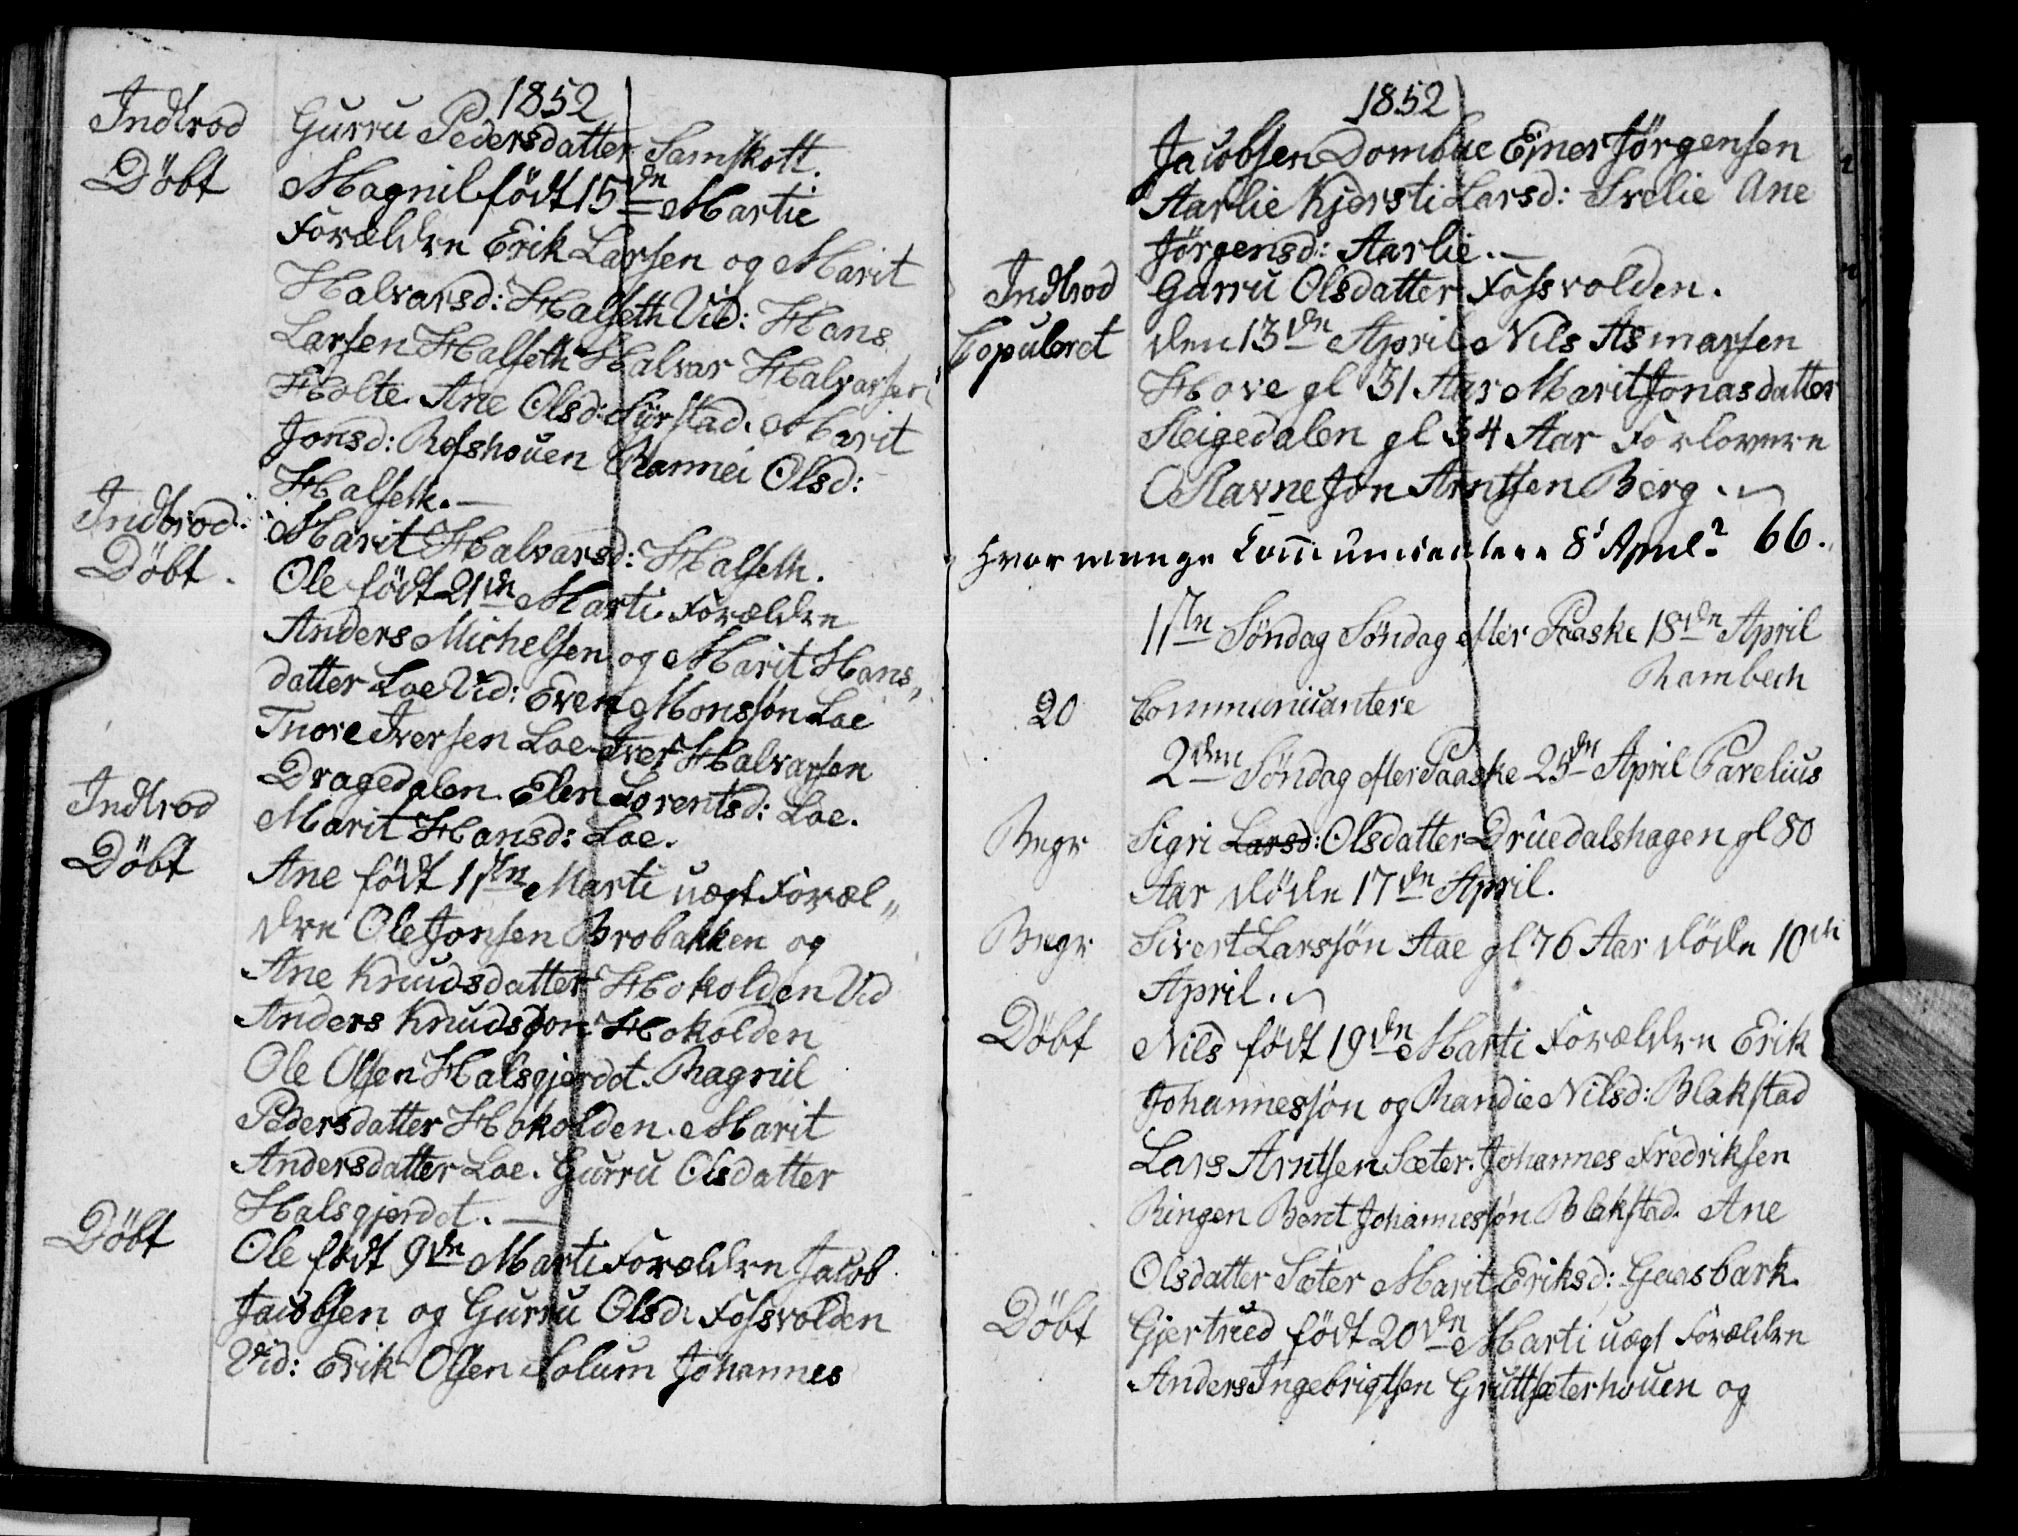 1852
Indtrod Gurru Pedersdatter Samskott.
Döbt Magnil födt 15de Martie
Forældre Erik Larsen og Marit
Halvarsd: Halseth Vid: Hans
Larsen Halseth Halvar Halvarsen
Holte. Ane Olsd: Sürstad. Marit
Jonsd: Refshouen Rannei Olsd:
Halseth.
Indtrod: Marit Halvarsd: Halseth.
Döbt. Ole födt 21de Marti Forældre
Anders Michelsen og Marit Hans„
datter Loe Vid: Even Monssön Loe
Tnore Iversen Loe Iver Halvarsen
Dragedalen. Elen Lorentsd: Loe.
Indtrod Marit Hansd: Loe.
Döbt Ane födt 11ten Marti uægt Foræl„
dre Ole Jonsen Brobakken og
Ane Knudsdatter Hokolden Vid
Anders Knudsson Hokolden
Ole Olsen Halsgjerdet. Magnil
Pedersdatter Hokolden. Marit
Andersdatter Loe. Gurru Olsdatter
Halsgjerdet.
Döbt Ole födt 9de Marti Forældre Jacob
Jacobsen og Gurru Olsd: Fossvolden
Vid: Erik Olsen Solum Johannes
1852
Jacobsen Dombue Einer Jörgensen
Aarlie Kjersti Larsd: Svelie Ane
Jörgensd: Aarlie.
Indtrod Gurru Olsdatter Fossvolden.
Copuleret den 13de April Nils Asmarsen
Hove gl 31 Aar Marit Jonasdatter
Sleigedalen gl 34 Aar Forlovere
O Ravne Jon Arntsen Berg.
Hvor mange Communicantere 8' April? 66.
1ste Söndag Söndag efter Paaske 18de April
Rambech
20 Communicantere
2den Söndag efter Paaske 25de April Parelius
Begr Sigri Larsd: Olsdatter Druedalshagen gl 80
Aar döde 17de April.
Begr Sivert Larssön Aae gl 76 Aar döde 10de
April.
Döbt Nils födt 19de Marti Forældre Erik
Johannessön og Randie Nilsd: Blakstad
Lars Arntsen Sæter. Johannes Fredriksen
Ringen Bent Johannessön Blakstad. Ane
Olsdatter Sæter Marit Eriksd: Gaasbark.
Döbt Gjertrued födt 20de Marti uægt Forældre
Anders Ingebrigtsen Gruttsæterhouen og